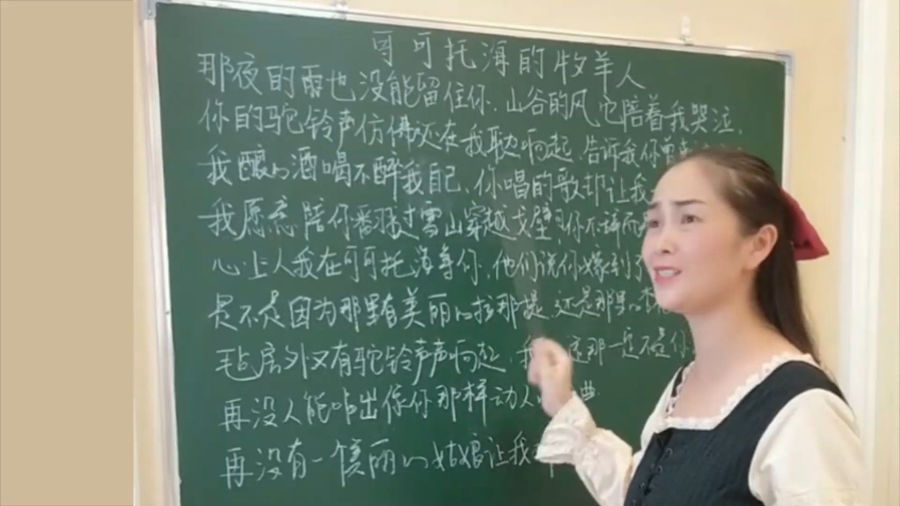 可可托海的牧羊人
那夜的雨也没能留住你、山谷的风它陪着我哭泣、
你的驼铃声仿佛还在我耳边响起、告诉我你曾
我酿的酒喝不醉我自己、你唱的歌却让我
我愿意陪你翻过雪山穿越戈壁可你不辞而
心上人我在可可托海等你、他们说你嫁到了
是不是因为那里有美丽的拉那提、还是那里
毡房外又有驼铃声声响起、我 这那一定不是你
再没人能唱出像你那样动人 曲
再没有一个美丽的姑娘让我